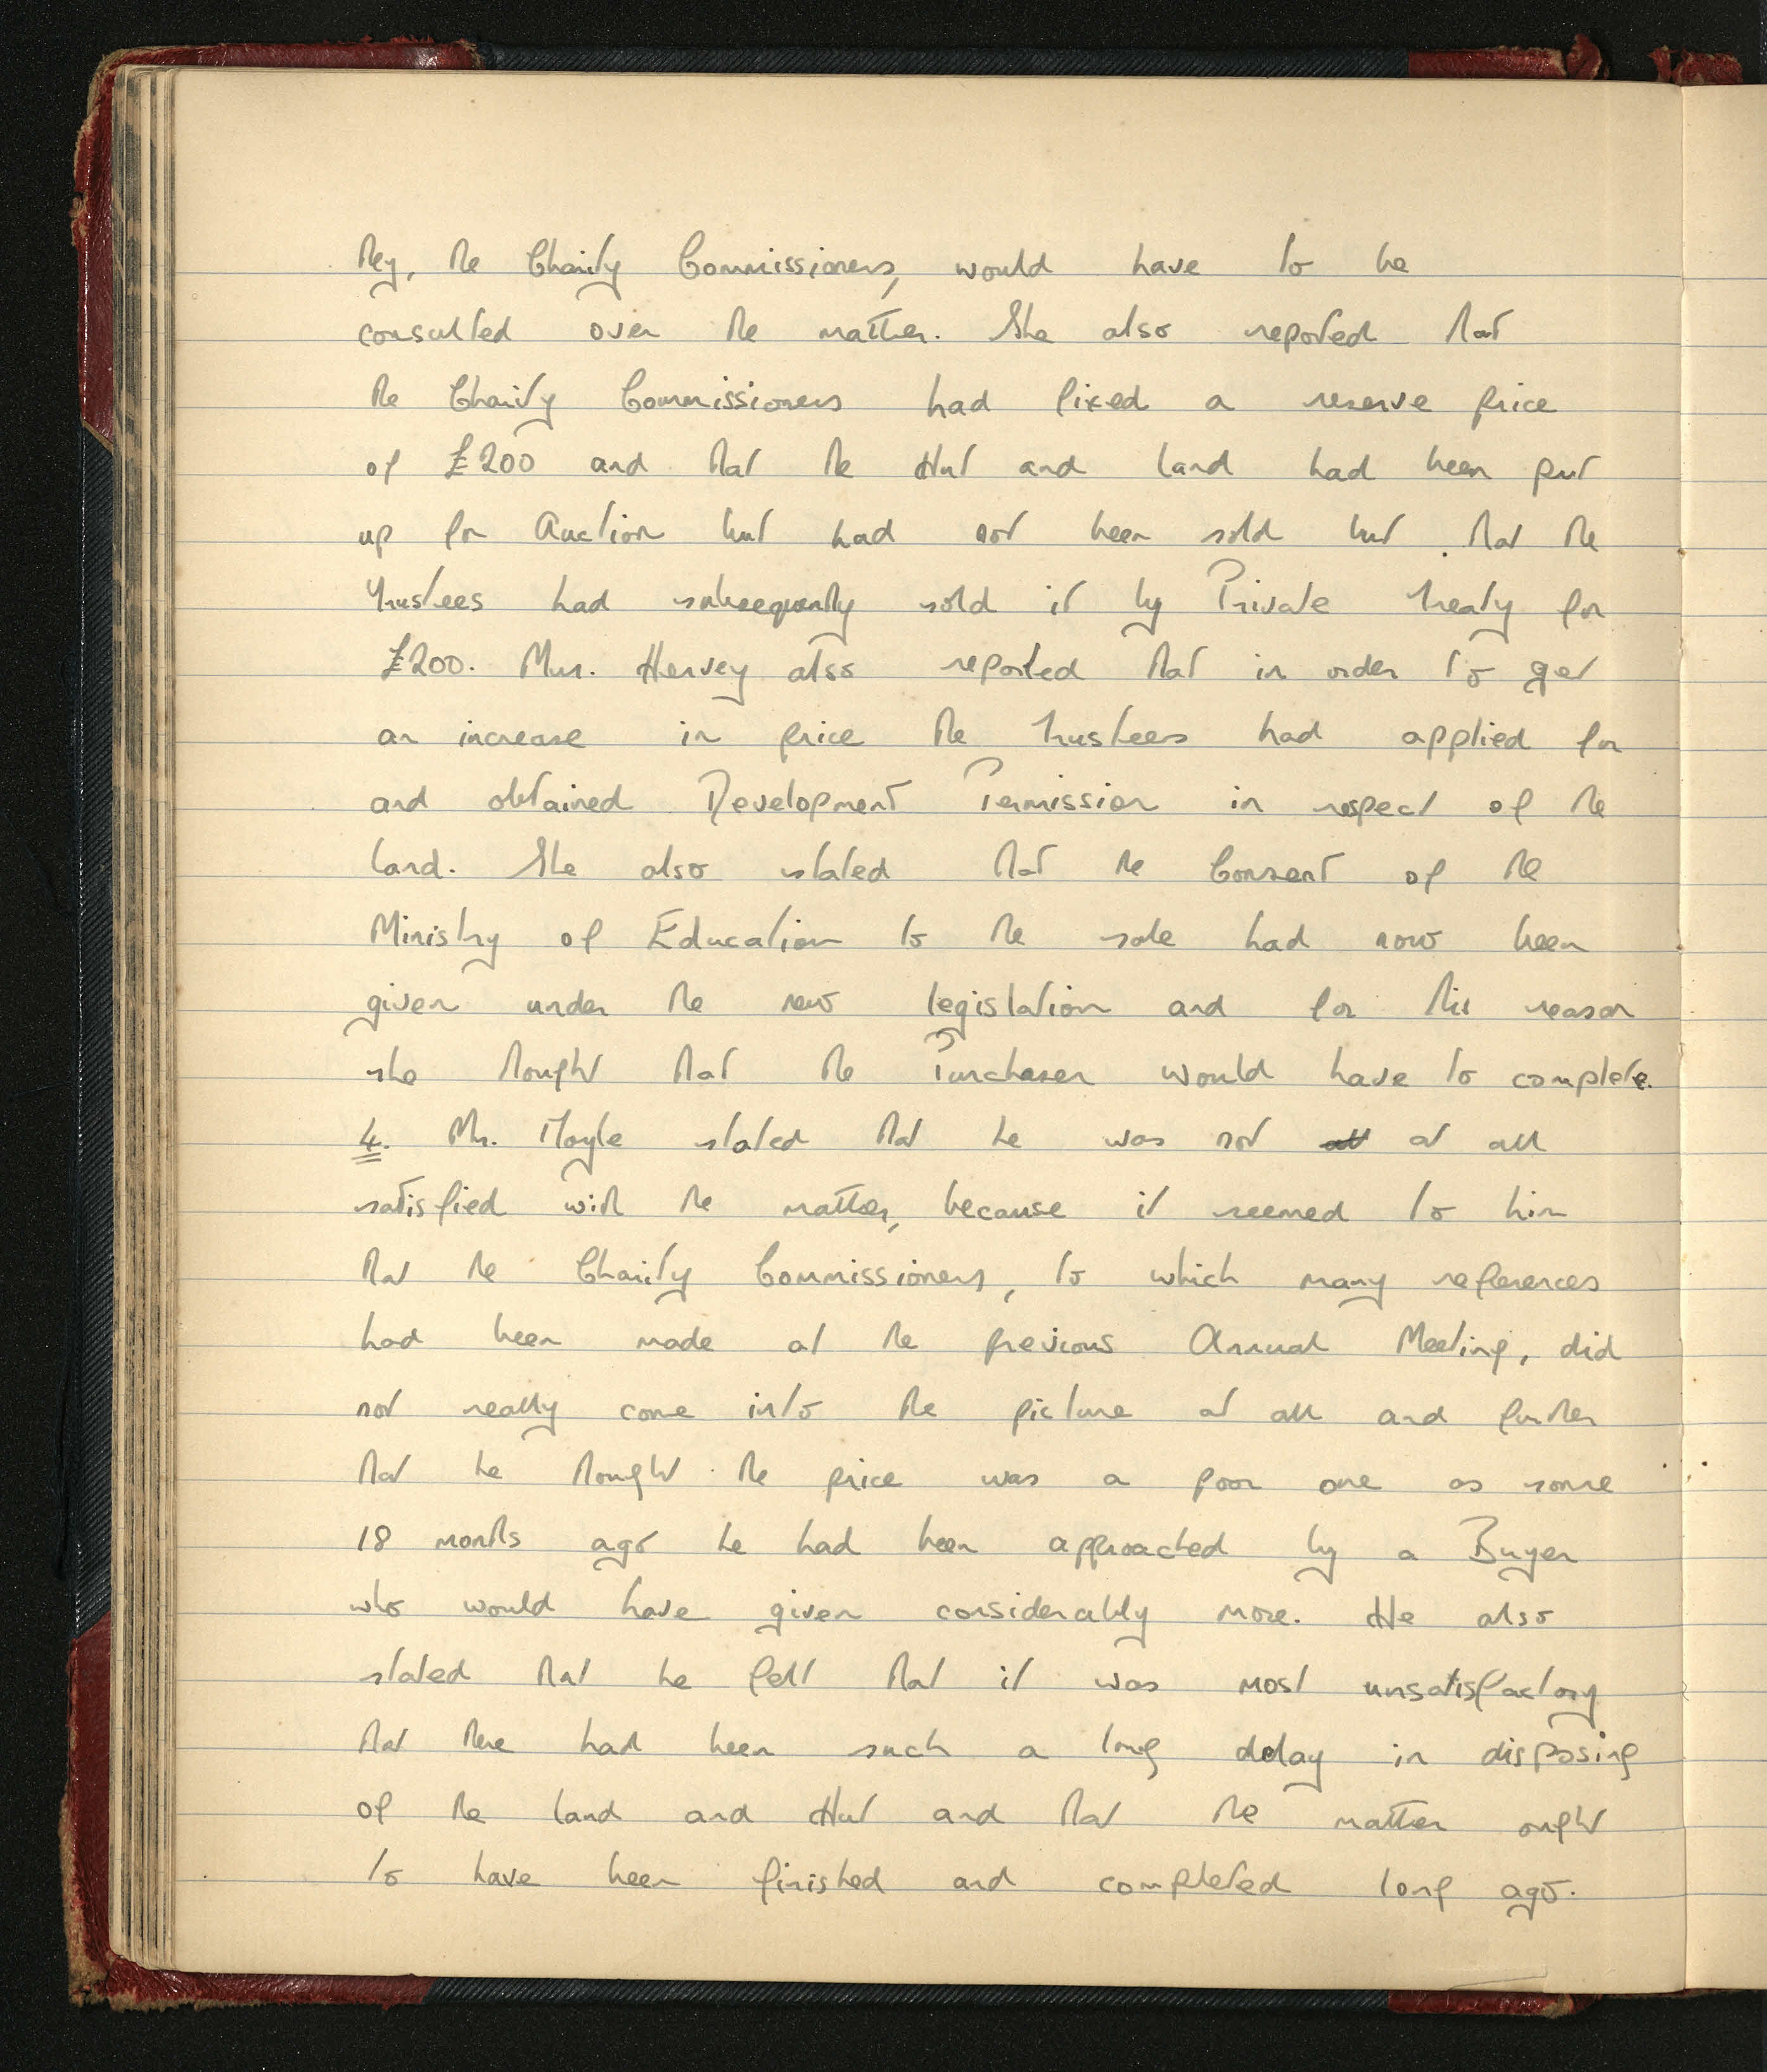 they, the Charity Commissioners, would have to be
consulted over the matter. She also reported that
the Charity Commissioners had fixed a reserve price
of £200 and that the Hut and land had been put
up for Auction but had not been sold but that the
Trustees had subsequently sold it by Private Treaty for
£200. Mrs. Hervey also reported that in order to get
an increase in price the Trustees had applied for
and obtained Development Permission in respect of the
land. She also stated that the Consent of the
Ministry of Education to the sale had now been
given under the new legislation and for this reason
she thought that the Purchaser would have to complete.
4. Mr. Moyle stated that he was not all at all
satisfied with the matter, because it seemed to him
that the Charity Commissioners, to which many references
had been made at the previous Annual Meeting, did
not really come into the picture at all and further
that he thought the price was a poor one as some
18 months ago he had been approached by a Buyer
who would have given considerably more. He also
stated that he felt that it was most unsatisfactory
that there had been such a long delay in disposing
of the land and Hut and that the matter ought
to have been finished and completed long ago.